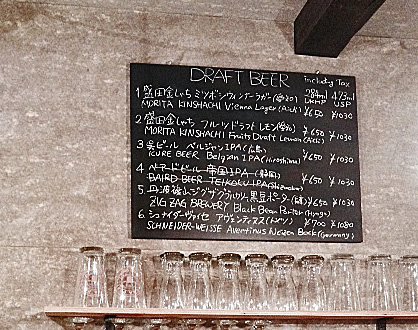 DRAFT BEER including Tax
284ml 473ml
UKHP USP
1 盛田金しゃち ミツボシウィンナーラガー(愛知)
MORITA KINSHACHI Vienna Lager (Aichi) ¥650 ¥1030
2 盛田金しゃち フルーツドラフトレモン(愛知)
MORITA KINSHACHI Fruits Draft Lemon (Aichi) ¥650 ¥1030
3 呉ビール ベルジャンIPA(広島)
KURE BEER Belgian IPA (Hiroshima) ¥650 ¥1030
4 ベアードビール 帝国IPA (静岡)
BAIRD BEER TEIKOKU IPA (Shizuoka) ¥650 ¥1030
5 丹波篠山ジグザグブルワリー 黒豆ポーター(兵庫)
ZIGZAG BREWERY Black Bean Porter (Hyogo) ¥650 ¥1030
6 シュナイダーヴァイセ アヴェンティヌス (ドイツ)
SCHNEIDER-WEISSE Aventinus Weizen Bock (Germany) ¥700 ¥1080